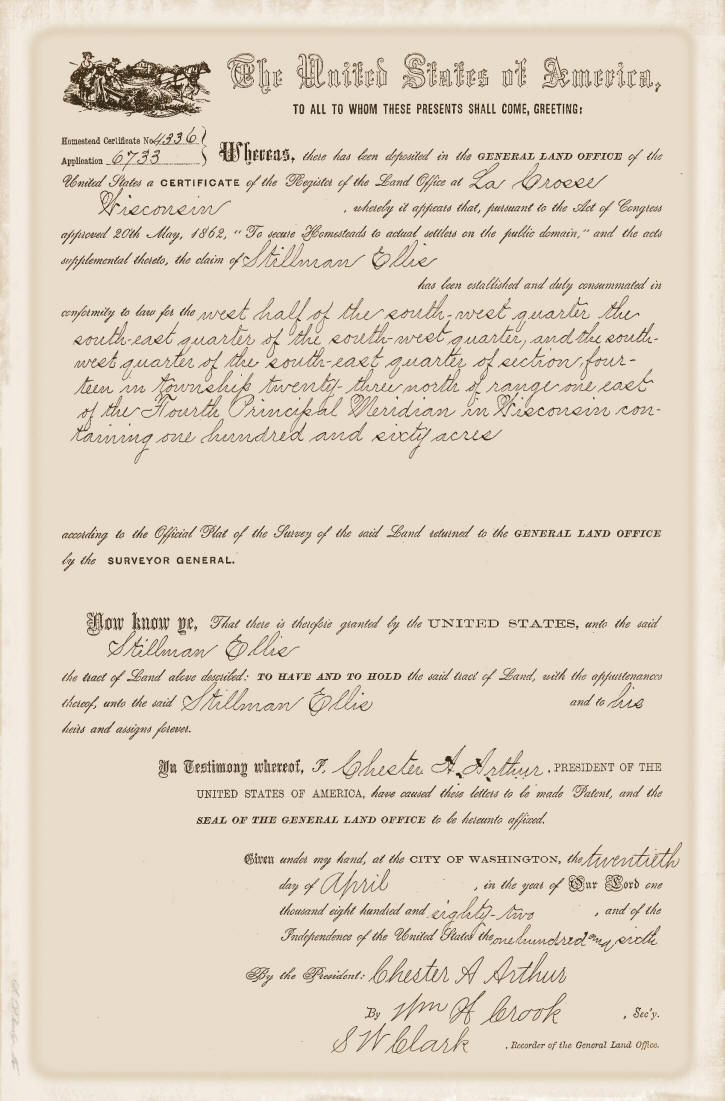 The United States of America,
TO ALL TO WHOM THESE PRESENTS SHALL COME, GREETING:
Homestead Certificate No 4336
Application 6733
Whereas, there has been deposited in the GENERAL LAND OFFICE of the
United States a CERTIFICATE of the Register of the Land Office at La Crosse
Wisconsin , whereby it appears that, pursuant to the Act of Congress
approved 20th May, 1862, "To secure Homesteads to actual settlers on the public domain," and the acts
supplemental thereto, the claim of Stillman Ellis
has been established and duly consummated in
conformity to law for the west half of the south-west quarter the
south-east quarter of the south-west quarter, and the south-
west quarter of the south-east quarter of section four-
teen in township twenty-three north of range one east
of the Fourth Principal Meridian in Wisconsin con-
taining one hundred and sixty acres
according to the Official Plat of the Survey of the said Land returned to the GENERAL LAND OFFICE
by the SURVEYOR GENERAL.
Now know ye, That there is therefore granted by the UNITED STATES, unto the said
Stillman Ellis
the tract of Land above described: TO HAVE AND TO HOLD the said tract of Land, with the appurtenances
thereof, unto the said Stillman Ellis and to his
heirs and assigns forever.
In Testimony whereof, I, Chester A. Arthur, PRESIDENT OF THE
UNITED STATES OF AMERICA, have caused these letters to be made Patent, and the
SEAL OF THE GENERAL LAND OFFICE to be hereunto affixed.
Given under my hand, at the CITY OF WASHINGTON, the twentieth
day of April , in the year of Our Lord one
thousand eight hundred and eighty-two , and of the
Independence of the United States the one hundred and sixth
By the President: Chester A Arthur
By Wm H Crook , Sec'y.
S W Clark , Recorder of the General Land Office.